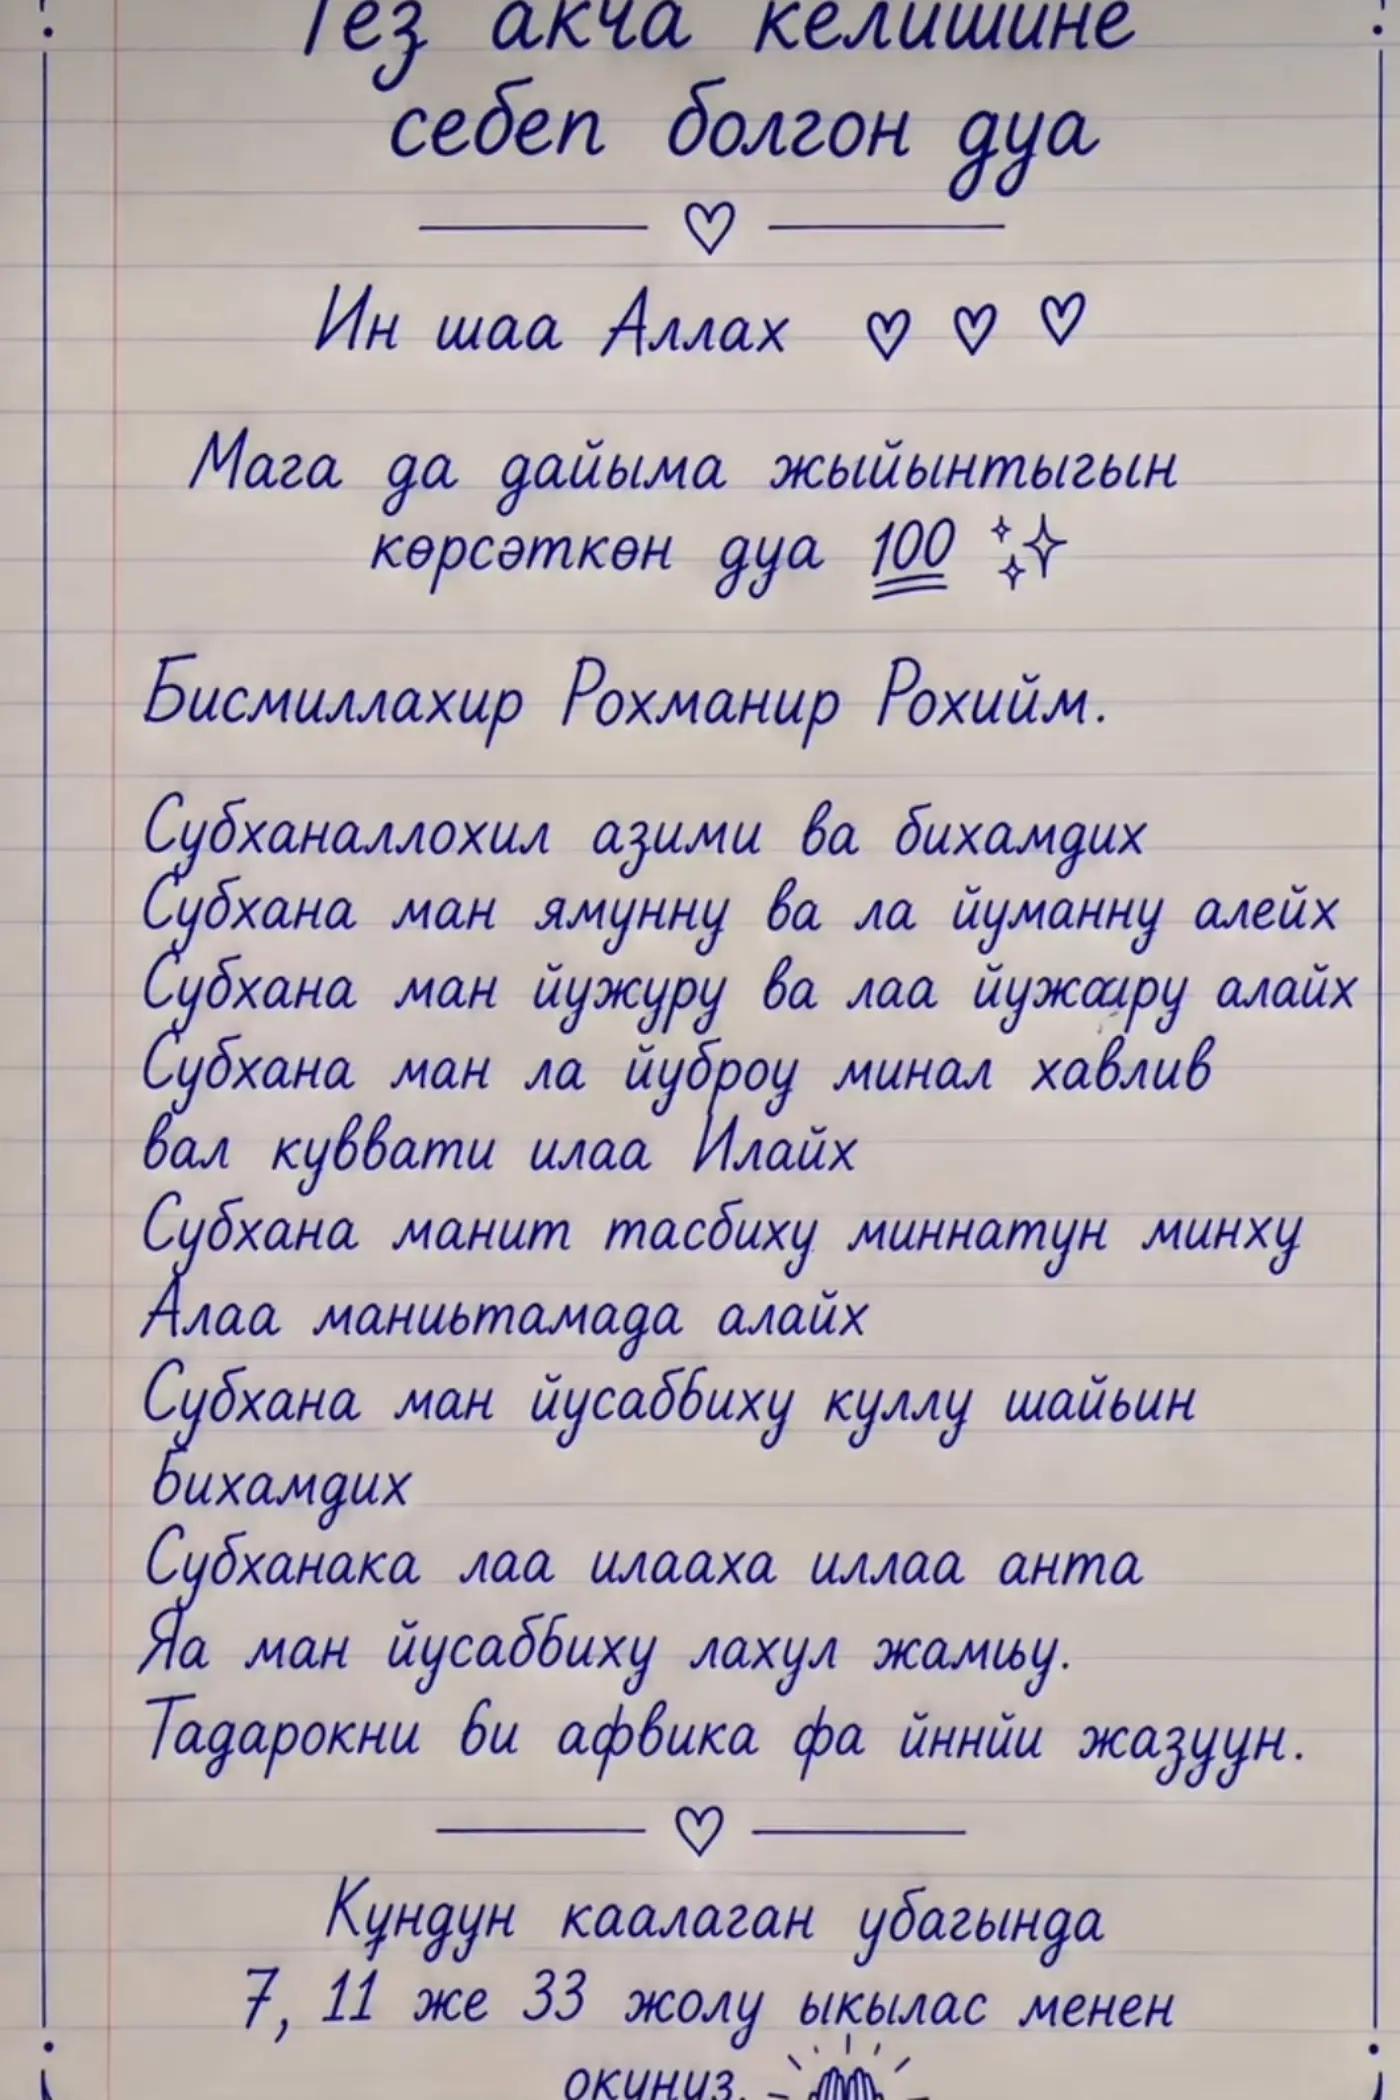 Тез акча келишине
себеп болгон дуа
Ин шаа Аллах
Мага да дайыма жыйынтыгын
көрсәткөн дуа 100
Бисмиллахир Рохманир Рохийм.
Субханаллохил азими ва бихамдих
Субхана ман ямунну ва ла йуманну алейх
Субхана ман йужуру ва лаа йужаару алайх
Субхана ман ла йуброу минал хавлив
вал куввати илаа Илайх
Субхана манит тасбиху миннатун минху
Алаа маниьтамада алайх
Субхана ман йусаббиху куллу шайьин
бихамдих
Субханака лаа илааха иллаа анта
Яа ман йусаббиху лахул жамиьу.
Тадарокни би афвика фа йннйи жазуун.
Күндүн каалаган убагында
7, 11 же 33 жолу ыкылас менен
окуңуз.